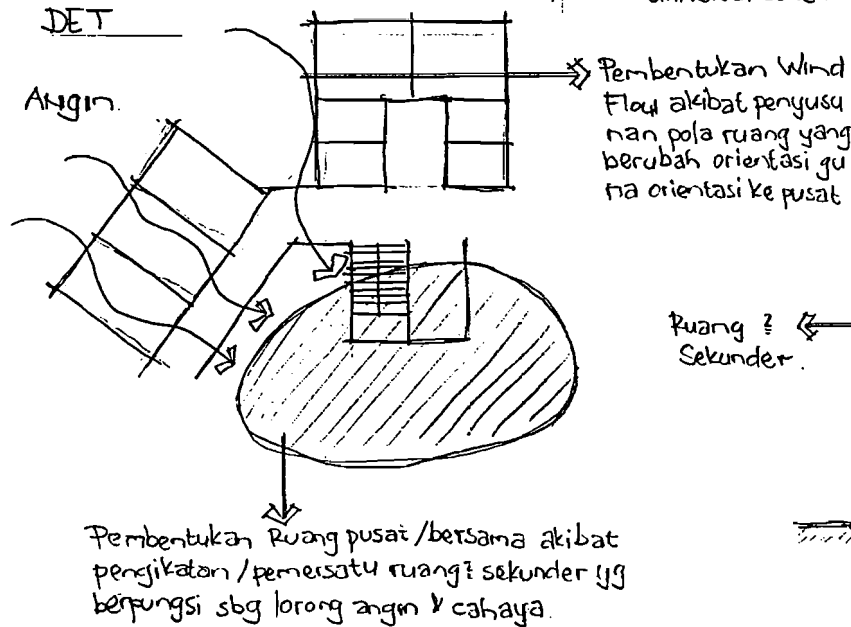 DET
Angin.
Pembentukan Wind
Flow akibat penyusu
nan pola ruang yang
berubah orientasi gu
na orientasi ke pusat
Ruang 2
Sekunder.
Pembentukan Ruang pusat /bersama akibat
pengikatan /pemersatu ruang2 sekunder yg
berpungsi sbg lorong angin & cahaya.